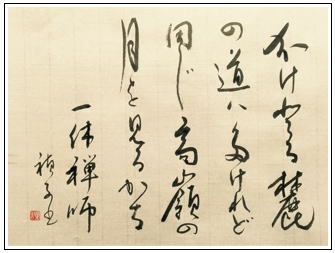 分け登る麓
の道ハ多けれど
同じ高嶺の
月を見るかな
一休禅師